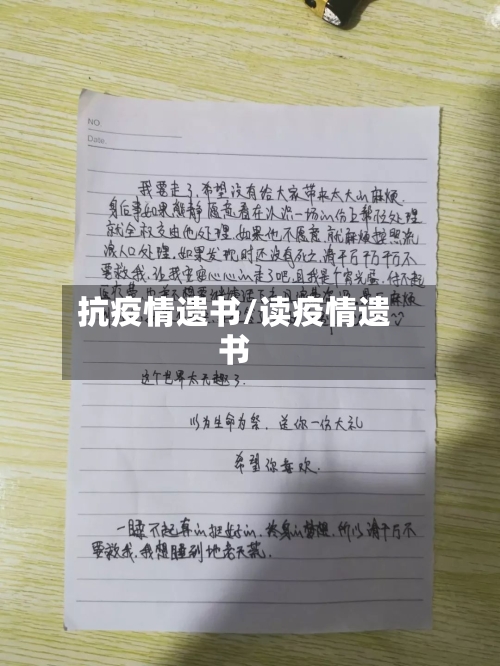 NO.
Date.
我要走了,希望没有给大家带来太大in麻烦.
身后事如果 静愿意看在次识一场in份上帮忙处理
就全权交由他处理.如果他不愿意,就麻烦按照流
浪人口处理,如果发现时还没有死之,请千万千万不
要救我,让我安安心心in走了吧,且我是个穷光蛋,付不起
抗疫情遗书/读疫情遗
书
这个世界太无趣了.
以为生命为祭,送你一份大礼
希望你喜欢.
一睡不起真in挺好in,终身in梦想,所以请千万不
要救我,我想睡到地老天荒.